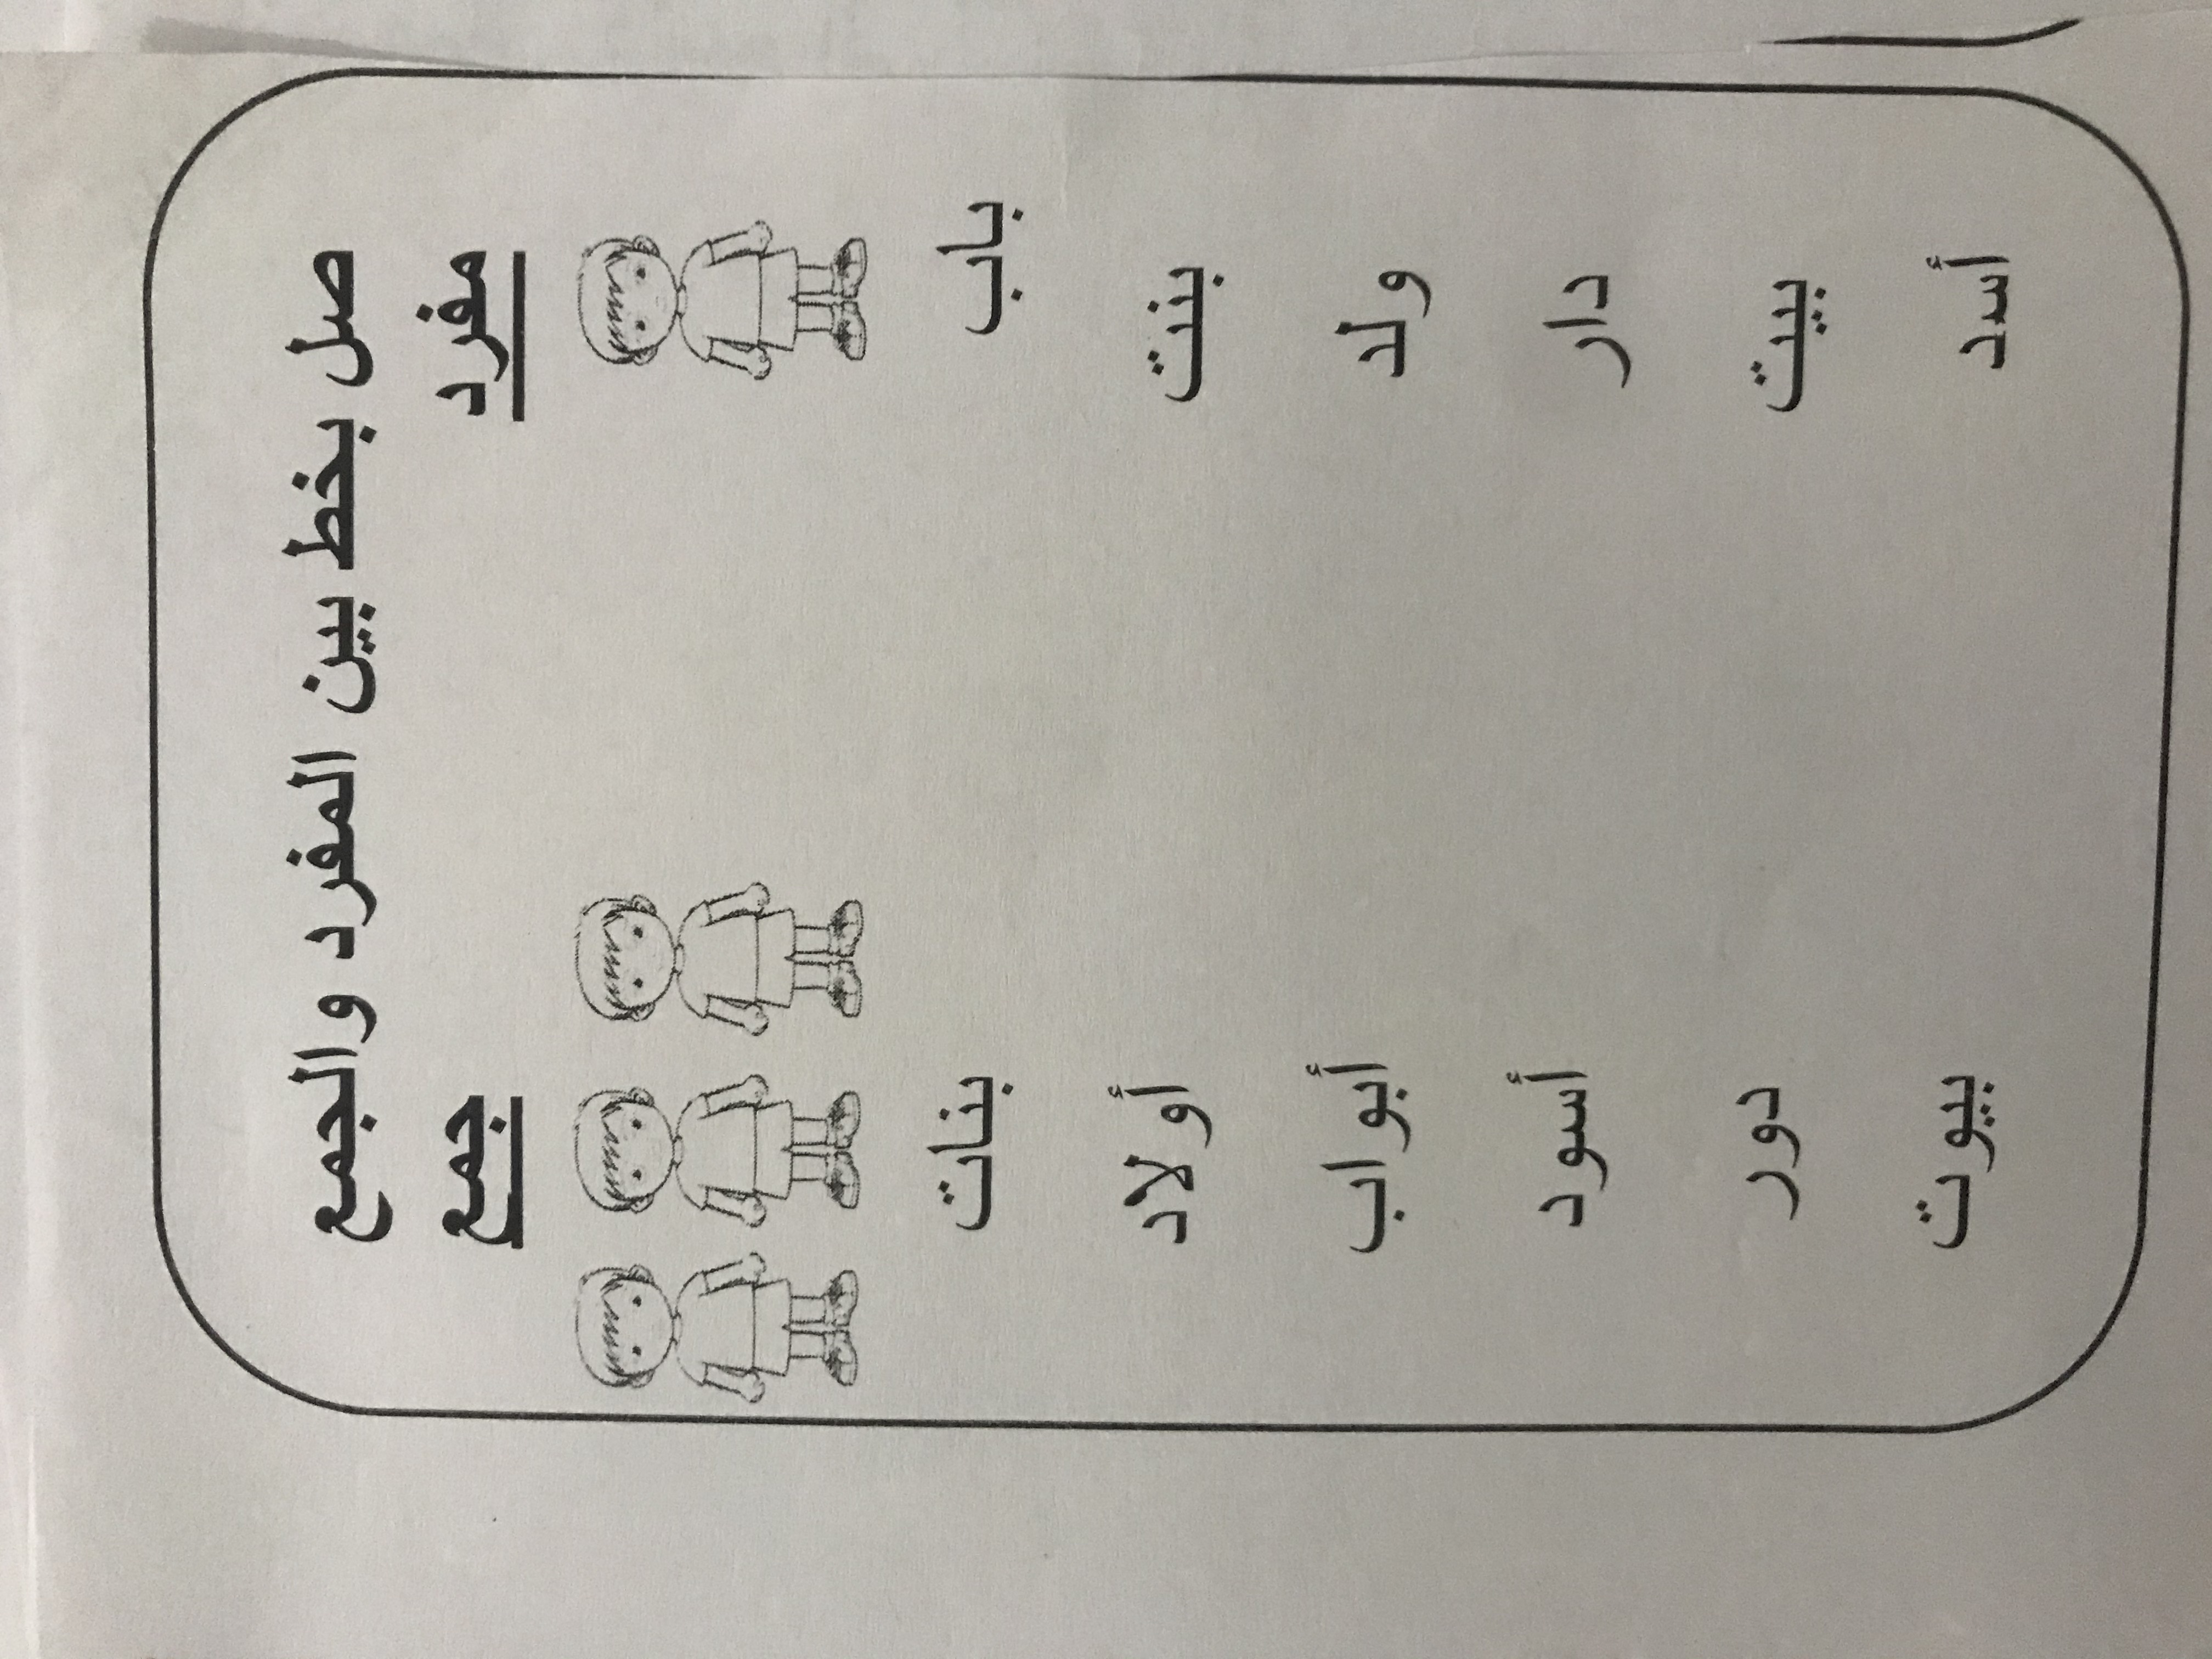 صل بخط بين المفرد والجمع
مفرد جمع
باب بنات
بنت أولاد
ولد أبواب
دار أسود
بيت دور
أسد بيوت